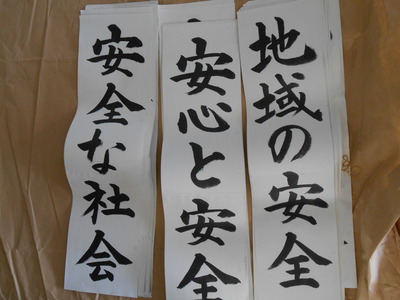 地域の安全
安心と安全
安全な社会